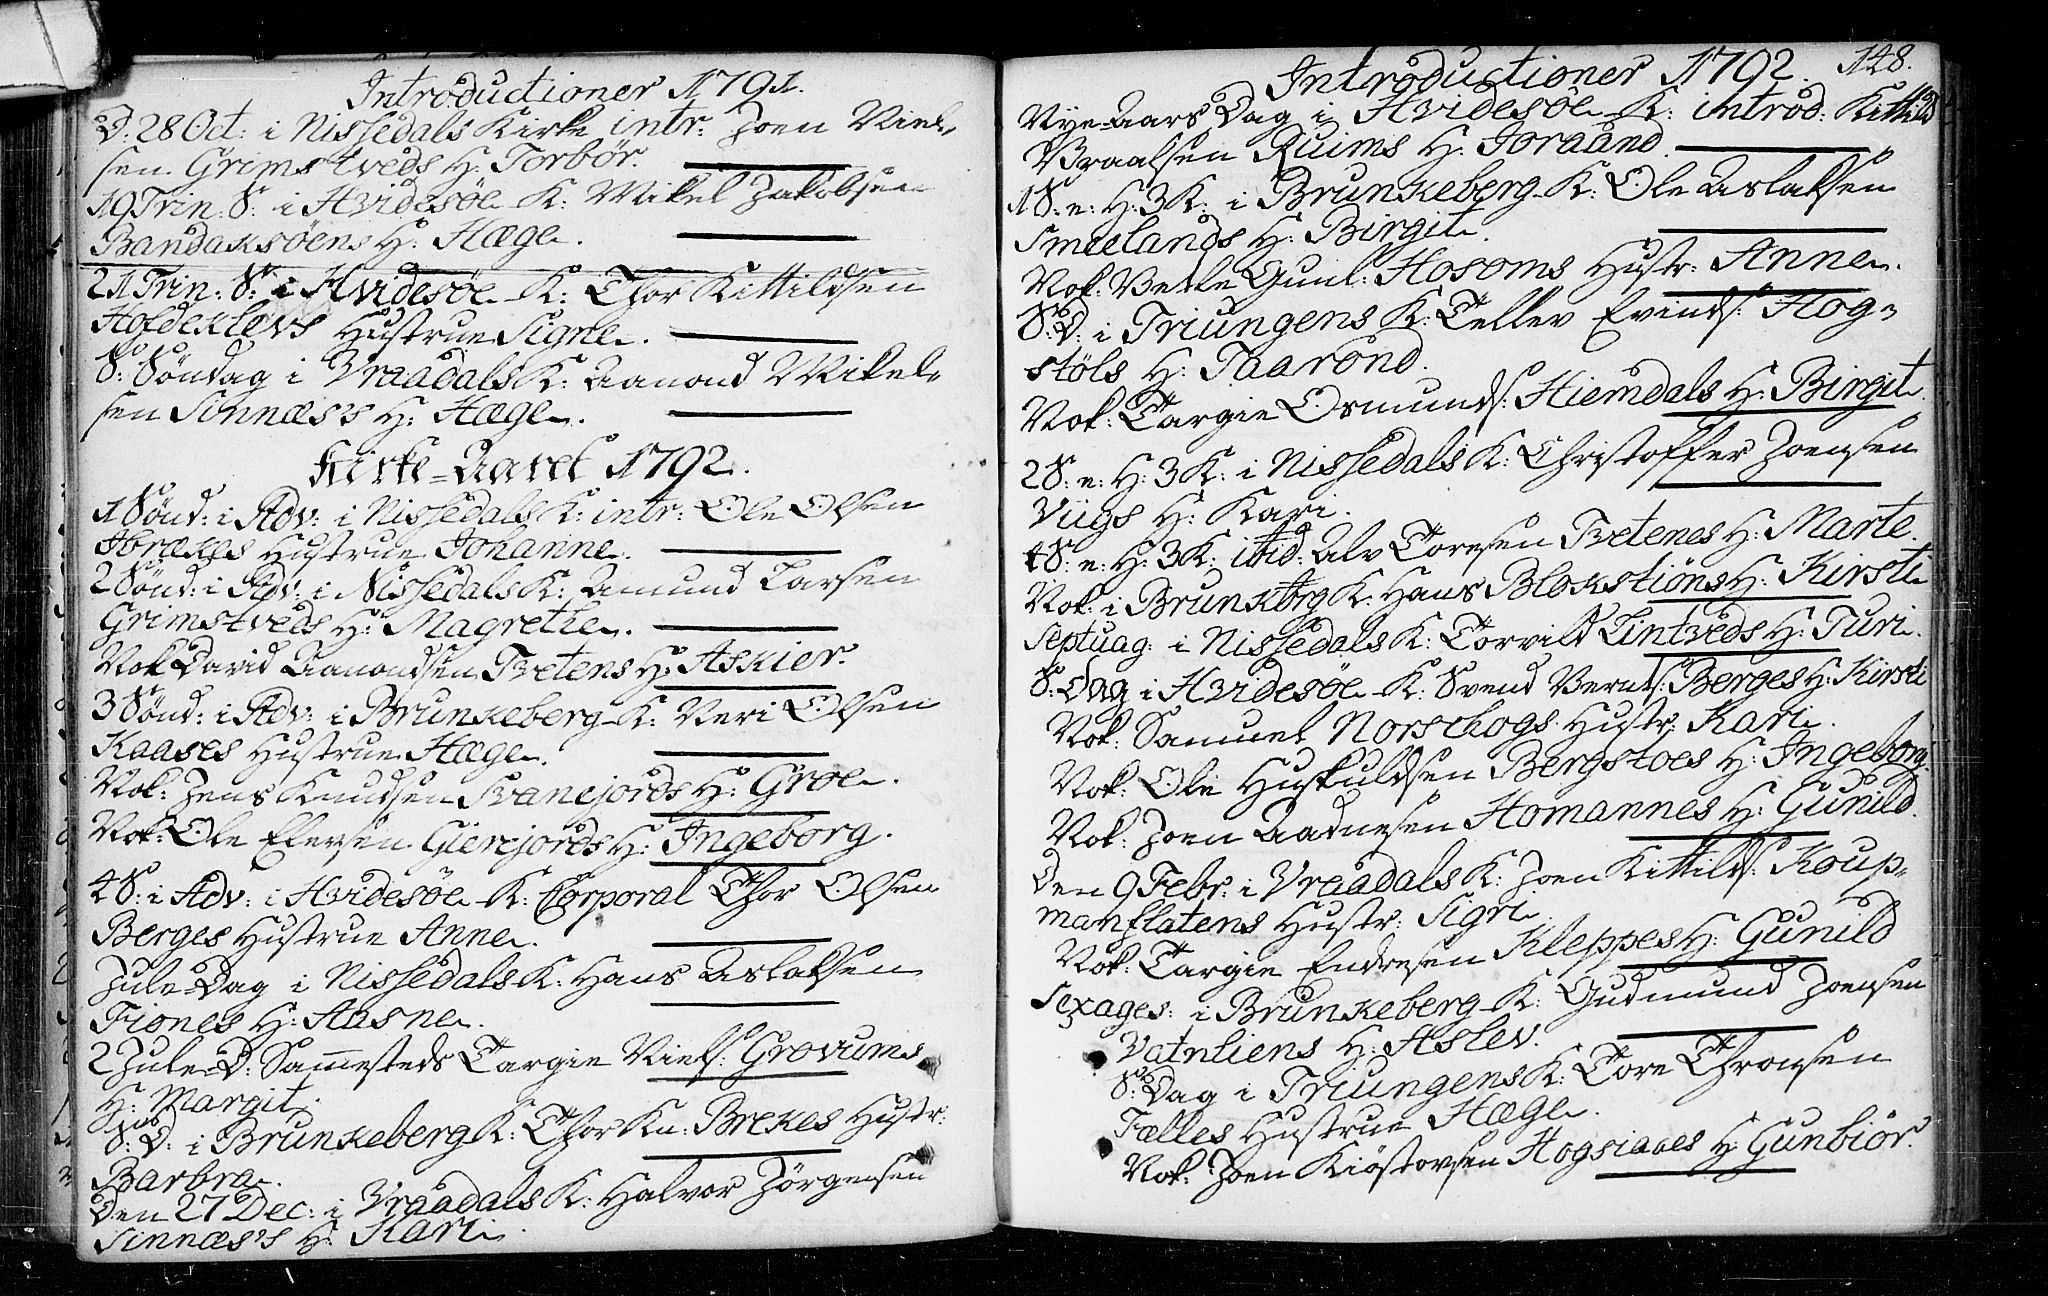 Introductioner 1791.
D. 28 Oct: i Nissedals Kirke intr: Joen Niel-
sen Grimstveds H: Torbør.
19 Trin: S: i Hvidesøe K: Mikel Jakobsen
Bandaksøens H: Hæge.
21 Trin: S: i Hvidesøe K: Thor Kittildsen
Hofdeklevs Hustrue Signe.
S: Søndag i Vraadals K: Aanond Mikel-
sen Sinnæs's H: Hæge.
Kirke-Aaret 1792.
1 Sønd: i Adv: i Nissedals K: intr: Ole Olsen
Hustrue Johanne.
2 Sønd: i Adv: i Nissedals K: Amund Larsen
Grimstveds H: Magrethe.
Nok David Aanondsen Tvetens H: Askier.
3 Sønd: i Adv: i Brunkeberg K: Neri Olsen
Kaases Hustrue Hæge.
Nok: Jens Knudsen Svanejords H: Groe.
Nok: Ole Elevsen Gierejords H: Ingeborg.
4 S: i Adv: i Hvidesøe K: Corporal Thor Olsen
Berges Hustrue Anne.
Jule-Dag i Nissedals K: Hans Aslaksen
Fiones H: Aasne.
2 Jule-D: Sammesteds Targie Niels: Grovums
H: Margit.
S: D: i Brunkeberg K: Thor Kn: Brekes Hustr:
Barbra.
Den 27 Dec: i Vraadals K: Halvor Jørgensen
Sinnæs's H: Kari.
Introductioner 1792. 148.
Nye-Aars Dag i Hvidesøe K: introd: Kittild
Braalsen Ruims H: Joraand.
1 S: e: H: 3 K: i Brunkeberg K: Ole Aslaksen
Smeelands H: Birgit.
Nok: Vetle Gunl: Aasoms Hustr: Anne.
S: D: i Triungens K: Tellev Evinds: Hog-
støls H: Taarond.
Nok: Targie Osmunds: Hiemdals H: Birgit.
2 S: e: H: 3 K: i Nissedals K: Christoffer Joensen
Viigs H: Kari.
4 S: e: H: 3 K: ibid: Alv Toresen Tvetenes H: Marte.
Nok: i Brunkebrg K: Hans Blokstiøns H: Kirsti
Septuag: i Nissedals K: Torvild Lintveds H: Turi.
S: Dag i Hvidesøe K: Svend Bernts: Berges H: Kirsti
Nok: Samuel Norskogs Hustr: Kari.
Nok: Ole Huskuldsen Bergstoes H: Ingeborg.
Nok: Joen Aadnesen Homannes H: Gunild.
Den 9 Febr: i Vraadals K: Joen Kittilds: Koup-
manflatens Hustr: Sigri
Nok: Targie Endresen Kleppes H: Gunild
Sexages: i Brunkeberg K: Gudmund Joensen
Vatnliens H: Aslev.
S: Dag i Triungens K: Tore Thronsen
Fælles Hustrue Hæge.
Nok: Joen Kiøstovsen H: Gunbiør.